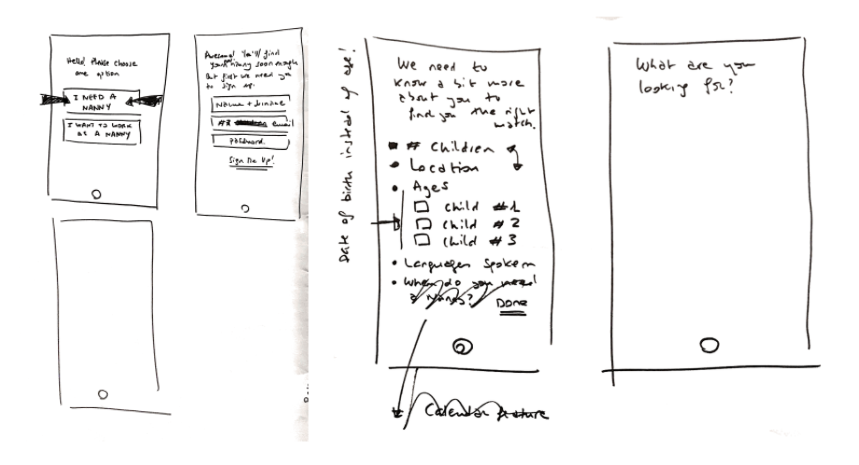 Hello! Please choose
one option
I NEED A
NANNY
I WANT TO WORK
AS A NANNY
Awesome! You'll find
your nanny soon enough
But first we need you
to sign up.
Name + Surname
email
Password
Sign Me Up!
Date of birth instead of age!
We need to
know a bit more
about you to
find you the right
match.
# Children
• Location
• Ages
child #1
child #2
child #3
• Languages spoken
• When do you need
a nanny?
Done
Calendar feature
What are you
looking for?